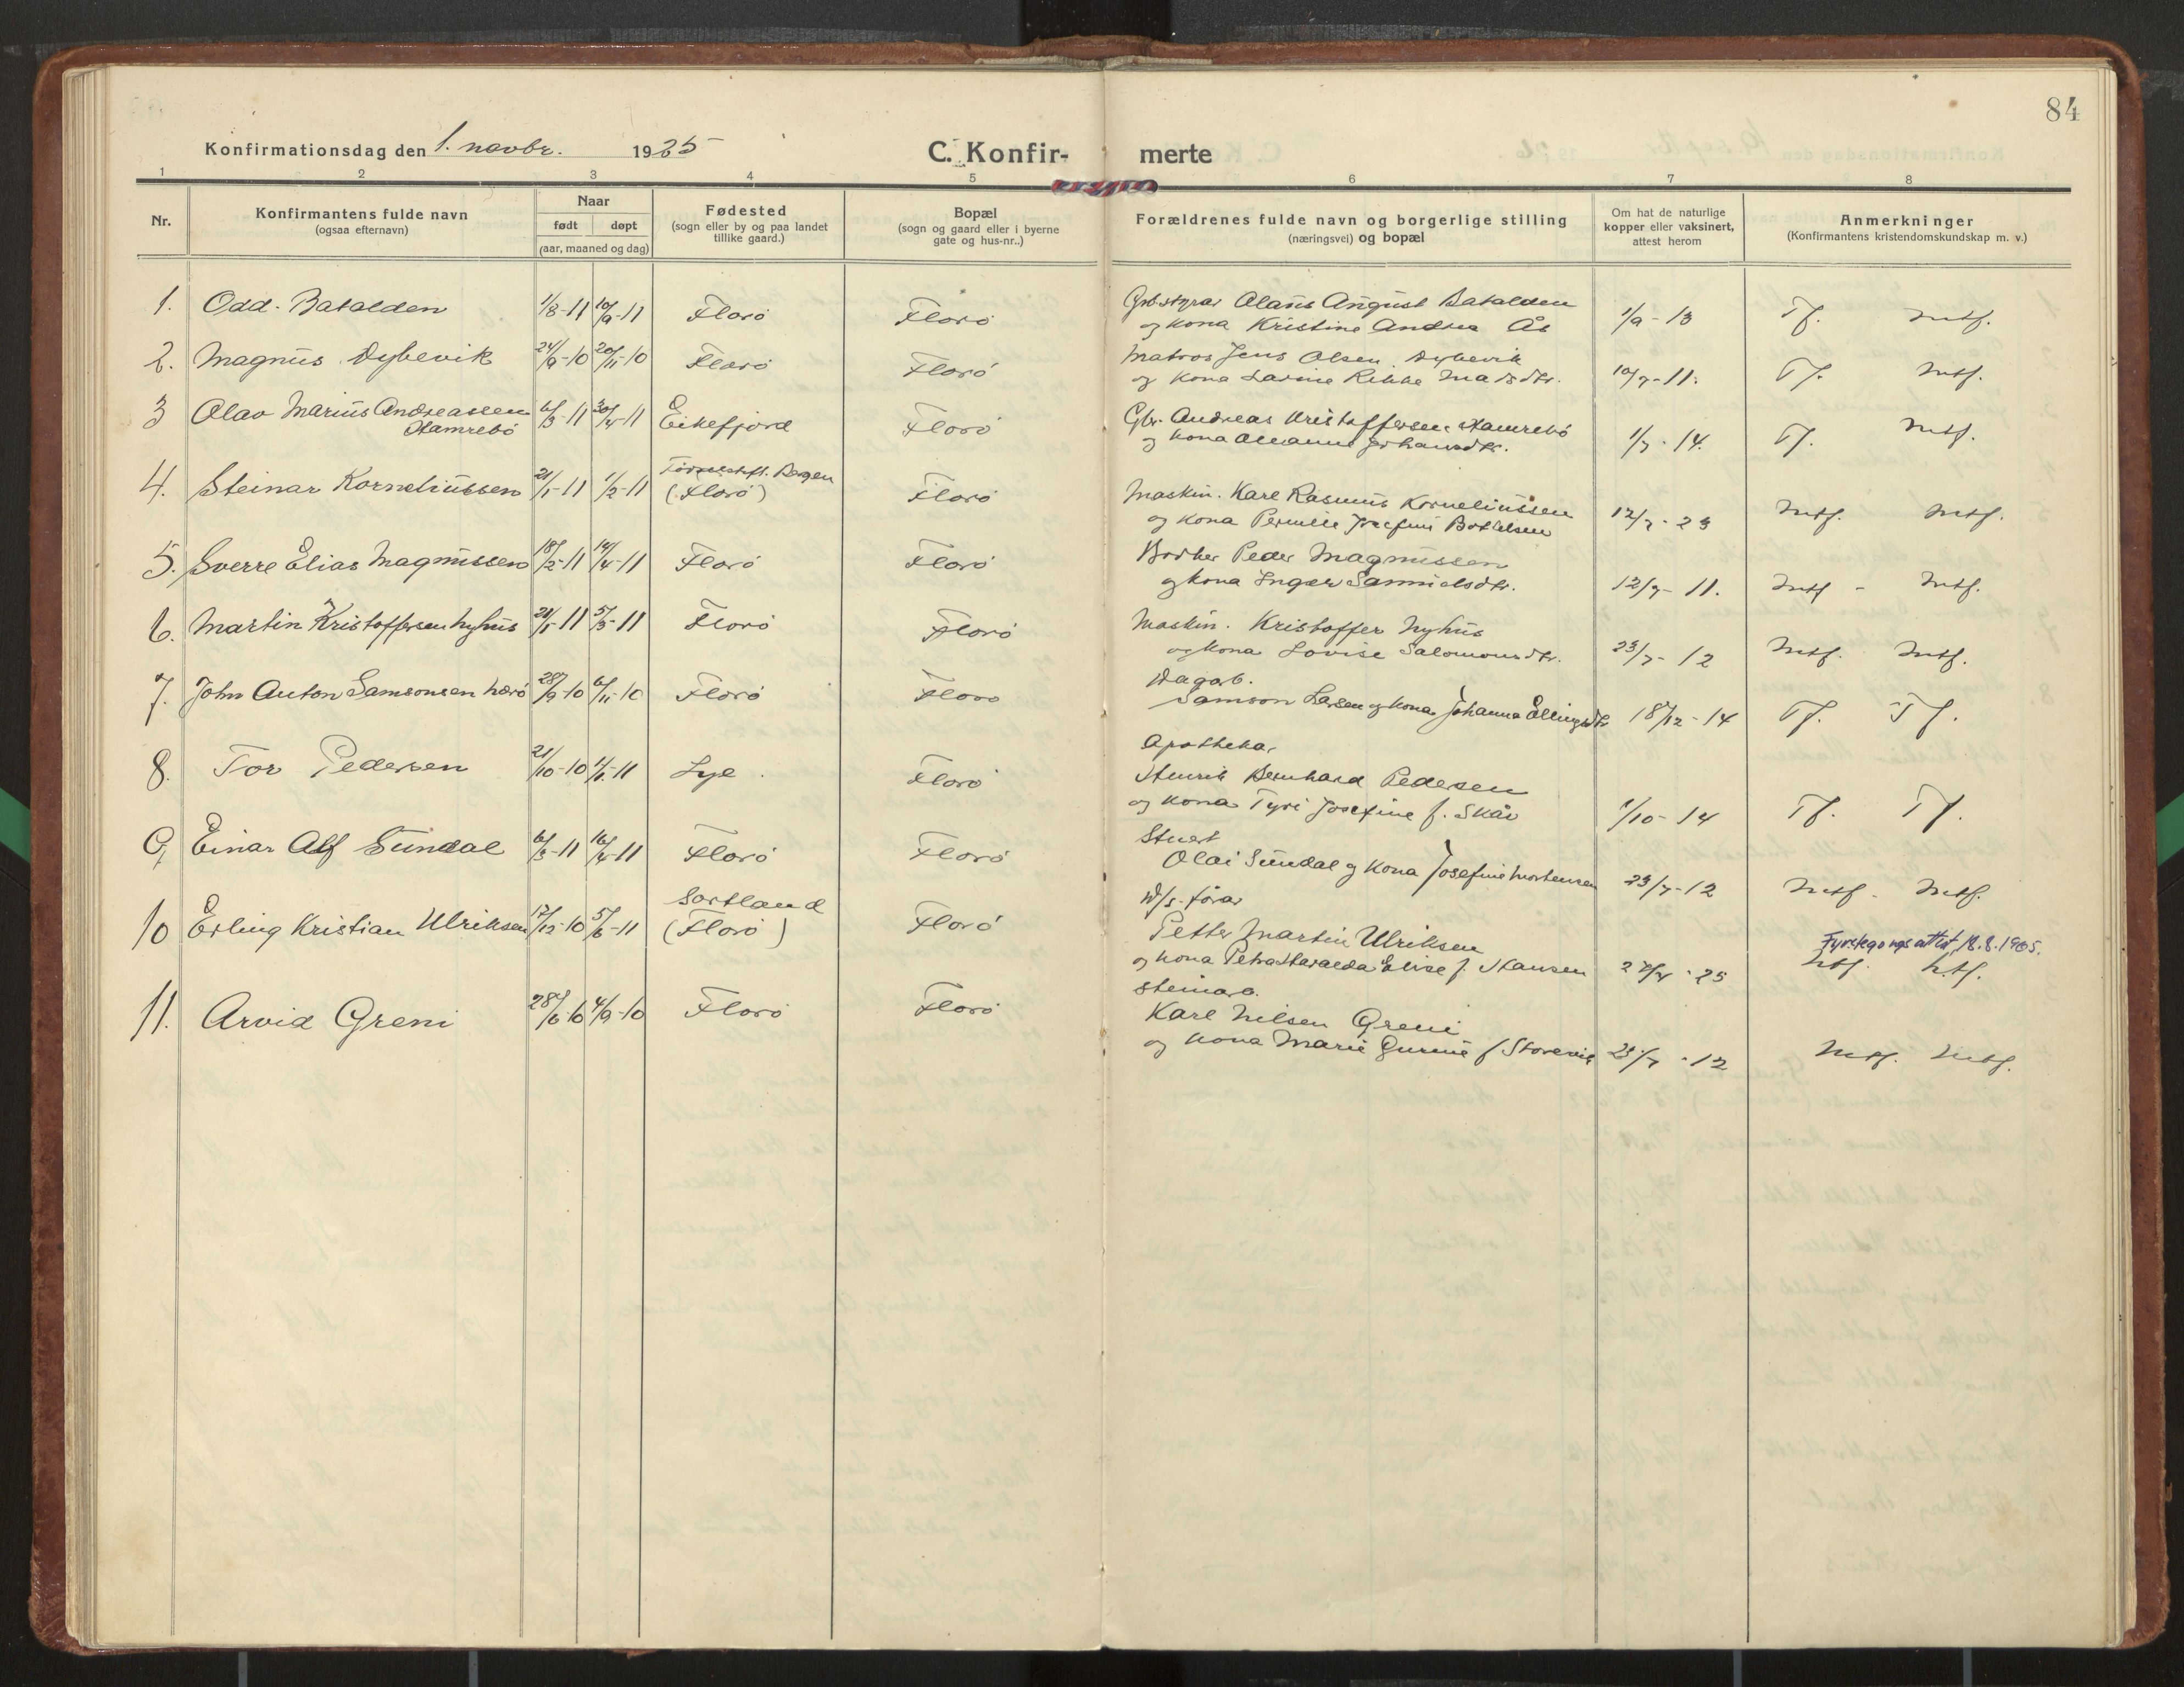 84
Konfirmationsdag den 1. novbr. 1925
C. Konfir- merte
1 2 3 4 5 6 7 8
Nr.
Konfirmantens fulde navn
(ogsaa efternavn)
Naar
født døpt
(aar, maaned og dag)
Fødested
(sogn eller by og paa landet
tillike gaard.)
Bopæl
(sogn og gaard eller i byerne
gate og hus-nr..)
Forældrenes fulde navn og borgerlige stilling
(næringsvei) og bopæl
Om hat de naturlige
kopper eller vaksinert,
attest herom
Anmerkninger
(Konfirmantens kristendomskundskap m. v.)
1. Odd Batalden 1/8-11 10/9-11 Florö Florö Olaus August Batalden 1/9-13 Tf. Mtf.
og kona Kristine Andrea Ås
2. Magnus Dybevik 24/9-10 20/11-10 Florö Florö Matros Jens Olsen Dybevik 10/7-11. Tf. Mtf.
og kona Larine Rikke Madsdtr.
3 Olav Marius Andreassen 6/3-11 30/4-11 Eikefjord Florö Gbr. Andreas Kristoffersen Hamrebö 1/7-14. Tf. Mtf.
Hamrebö og kona Oleanna Johansdtr.
4. Steinar Korneliussen 21/1-11 1/2-11 Födselsstift. Bergen
(Florö) Florö Maskin. Karl Rasmus Korneliussen 12/7-23 Mtf. Mtf.
og kona Pernille Josefine Bottelsen
5. Sverre Elias Magnussen 18/2-11 14/4-11 Florö Florö Peder Magnussen 12/7-11. Mtf - Mtf.
og kona Inger Samuelsdtr.
6. Martin Kristoffersen Nyhus 21/1-11 5/3-11 Florö Florö Maskin. Kristoffer Nyhus 23/7-12 Mtf. Mtf.
og kona Lovise Salomonsdtr.
7. John Anton Samsonsen 28/9-10 6/11-10 Florö Florö Dagarb.
Samson Larsen og kona Johanna Ellingsdtr 18/12-14 Tf. Tf.
8. Tor Pedersen 21/10-10 1/1-11 Lye. Florö Apothekar
Henrik Bernhard Pedersen
og kona Tyri Josefine f. Skår 1/10-14 Tf. Tf.
9, Einar Alf Sundal 6/3-11 16/4-11 Florö Florö Stuert
Olai Sundal og kona Josefine Mortensen 23/7-12 Mtf. Mtf.
10 Erling Kristian Ulriksen 17/12-10 5/6-11 Sortland
(Florö) Florö D/s. förar
Petter Martin Ulriksen Fyrstegongsattest 18.8.1965.
og kona Petra Haralda Elise f. Hansen 27/4-25 Mtf. Mtf.
11. Arvid Greni 28/6-10 4/9-10 Florö Florö Steinarb.
Karl Nilsen Greni
og kona Marie Gurine f Storevik 23/7-12 Mtf. Mtf.